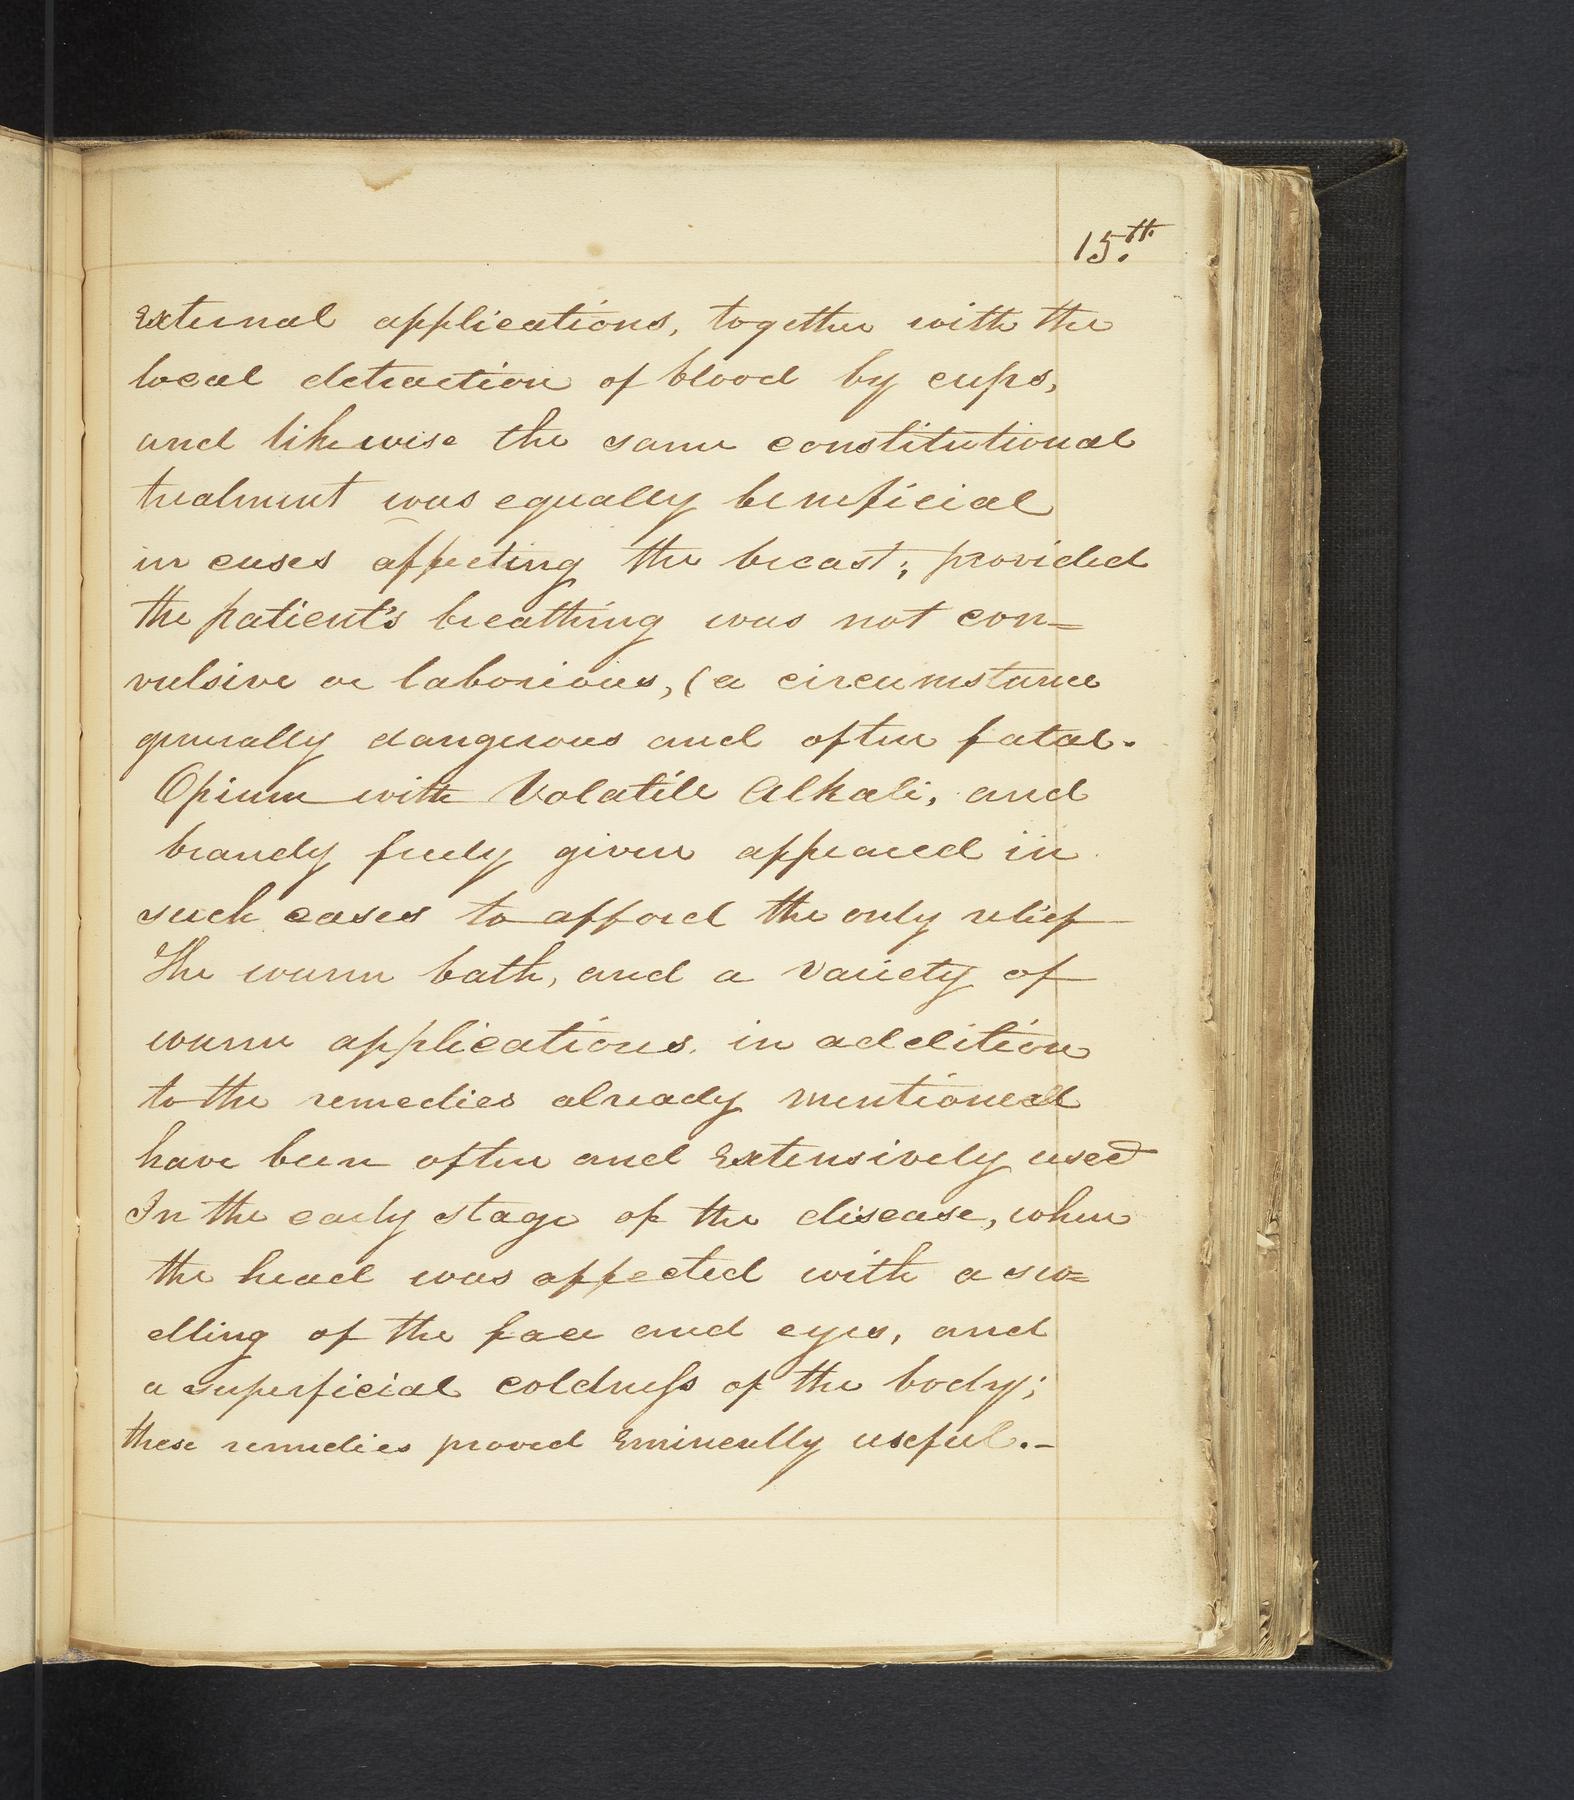 15.th
External applications, together with the
local detraction of blood by cups,
and likewise the same constitutional
treatment was equally beneficial
in cases affecting the breast; provided
the patient's breathing was not con=
vulsive or laborious, (a circumstance
generally dangerous and often fatal.
Opium with Volatile Alkali, and
brandy freely given appeared in
such cases to afford the only relief
The warm bath, and a variety of
warm applications. in addition
to the remedies already mentioned
have been often and Extensively used
In the early stage of the disease, when
the head was affected with a sw=
elling of the face and eyes, and
a superficial coldness of the body;
these remedies proved Eminently useful.-